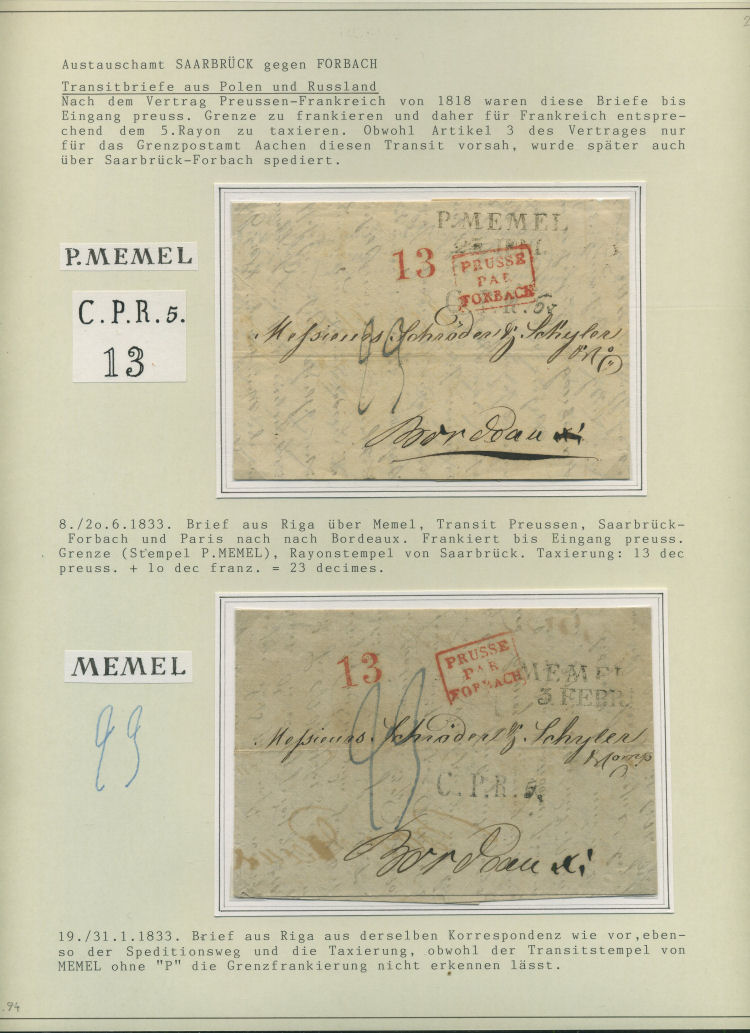 Austauschamt SAARBRÜCK gegen FORBACH
Transitbriefe aus Polen und Russland
Nach dem Vertrag Preussen-Frankreich von 1818 waren diese Briefe bis
Eingang preuss. Grenze zu frankieren und daher für Frankreich entspre-
chend dem 5.Rayon zu taxieren. Obwohl Artikel 3 des Vertrages nur
für das Grenzpostamt Aachen diesen Transit vorsah, wurde später auch
über Saarbrück-Forbach spediert.
P.MEMEL
C.P.R.5.
13
P.MEMEL
13
PRUSSE
PAR
FORBACK
Messieurs Schröder & Schyler
Bordeaux
8./2o.6.1833. Brief aus Riga über Memel, Transit Preussen, Saarbrück-
Forbach und Paris nach nach Bordeaux. Frankiert bis Eingang preuss.
Grenze (Stempel P.MEMEL), Rayonstempel von Saarbrück. Taxierung: 13 dec
preuss. + 1o dec franz. = 23 decimes.
MEMEL
13
PRUSSE
PAR
FORBACH
MEMEL
3 FEBR
Messieurs Schröder & Schyler
& Comp
C.P.R.5.
Bordeaux
19./31.1.1833. Brief aus Riga aus derselben Korrespondenz wie vor,eben-
so der Speditionsweg und die Taxierung, obwohl der Transitstempel von
MEMEL ohne "P" die Grenzfrankierung nicht erkennen lässt.
.94